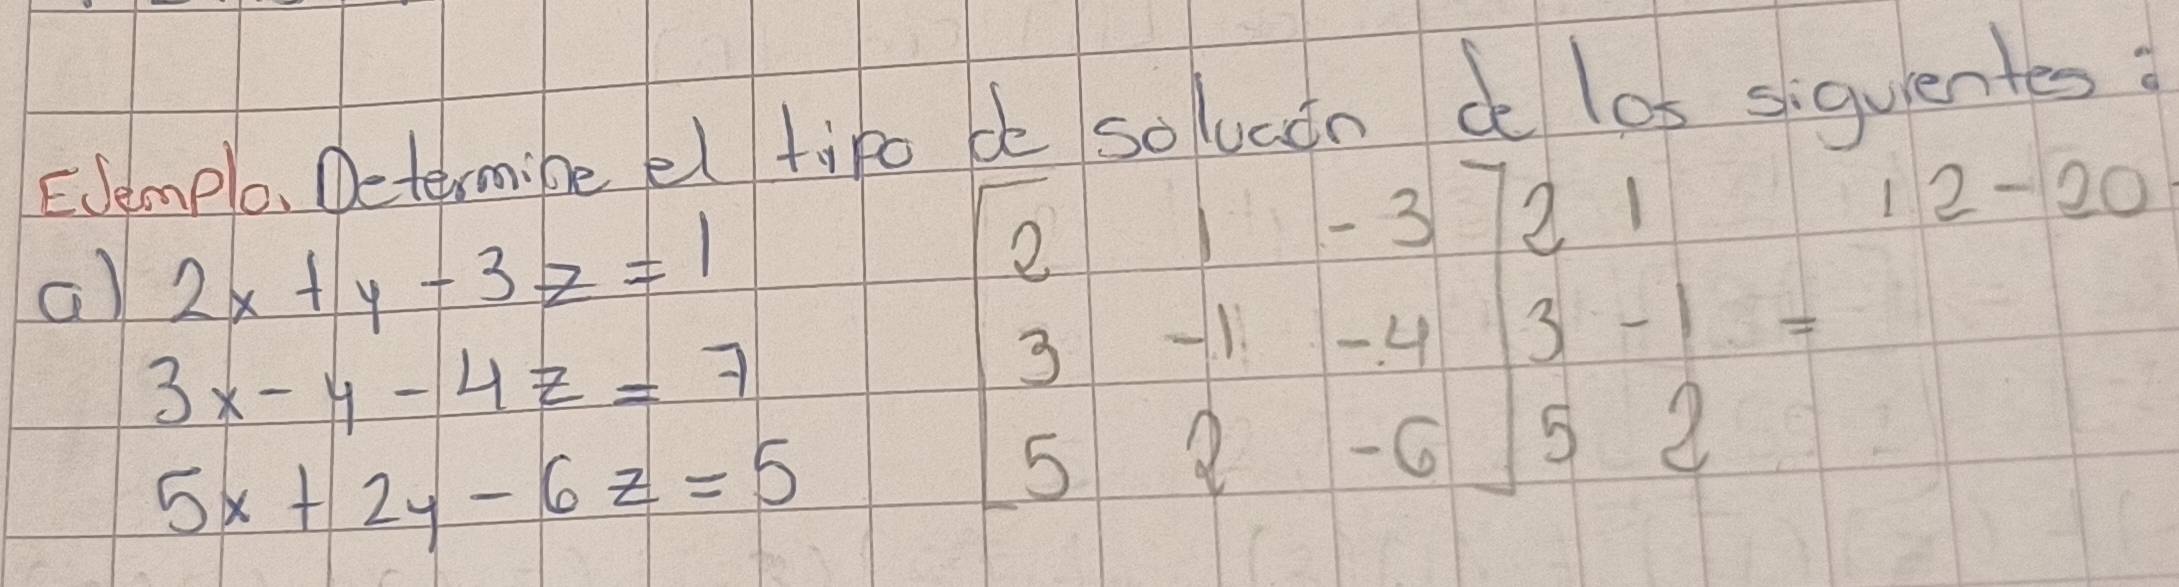 Ejemplo. Determine el tipo de solución de los siguientes:
a) 2x + y - 3z = 1
3x - y - 4z = 7
5x + 2y - 6z = 5
2 1 -3 2 1 12-20
3 -1 -4 3 -1 =
5 2 -6 5 2